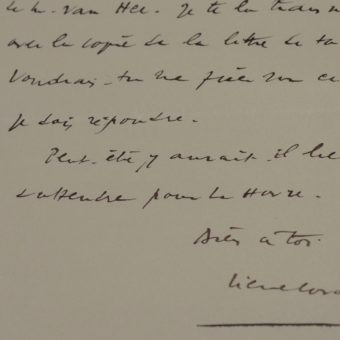 de M. Van Hee. Je te la trans
avec la copie de la lettre de ta
Voudrais-tu me fixer sur ce
je dois répondre.
Peut-être y aurait-il lie
s'attendre pour Le Havre.
Bien à toi.